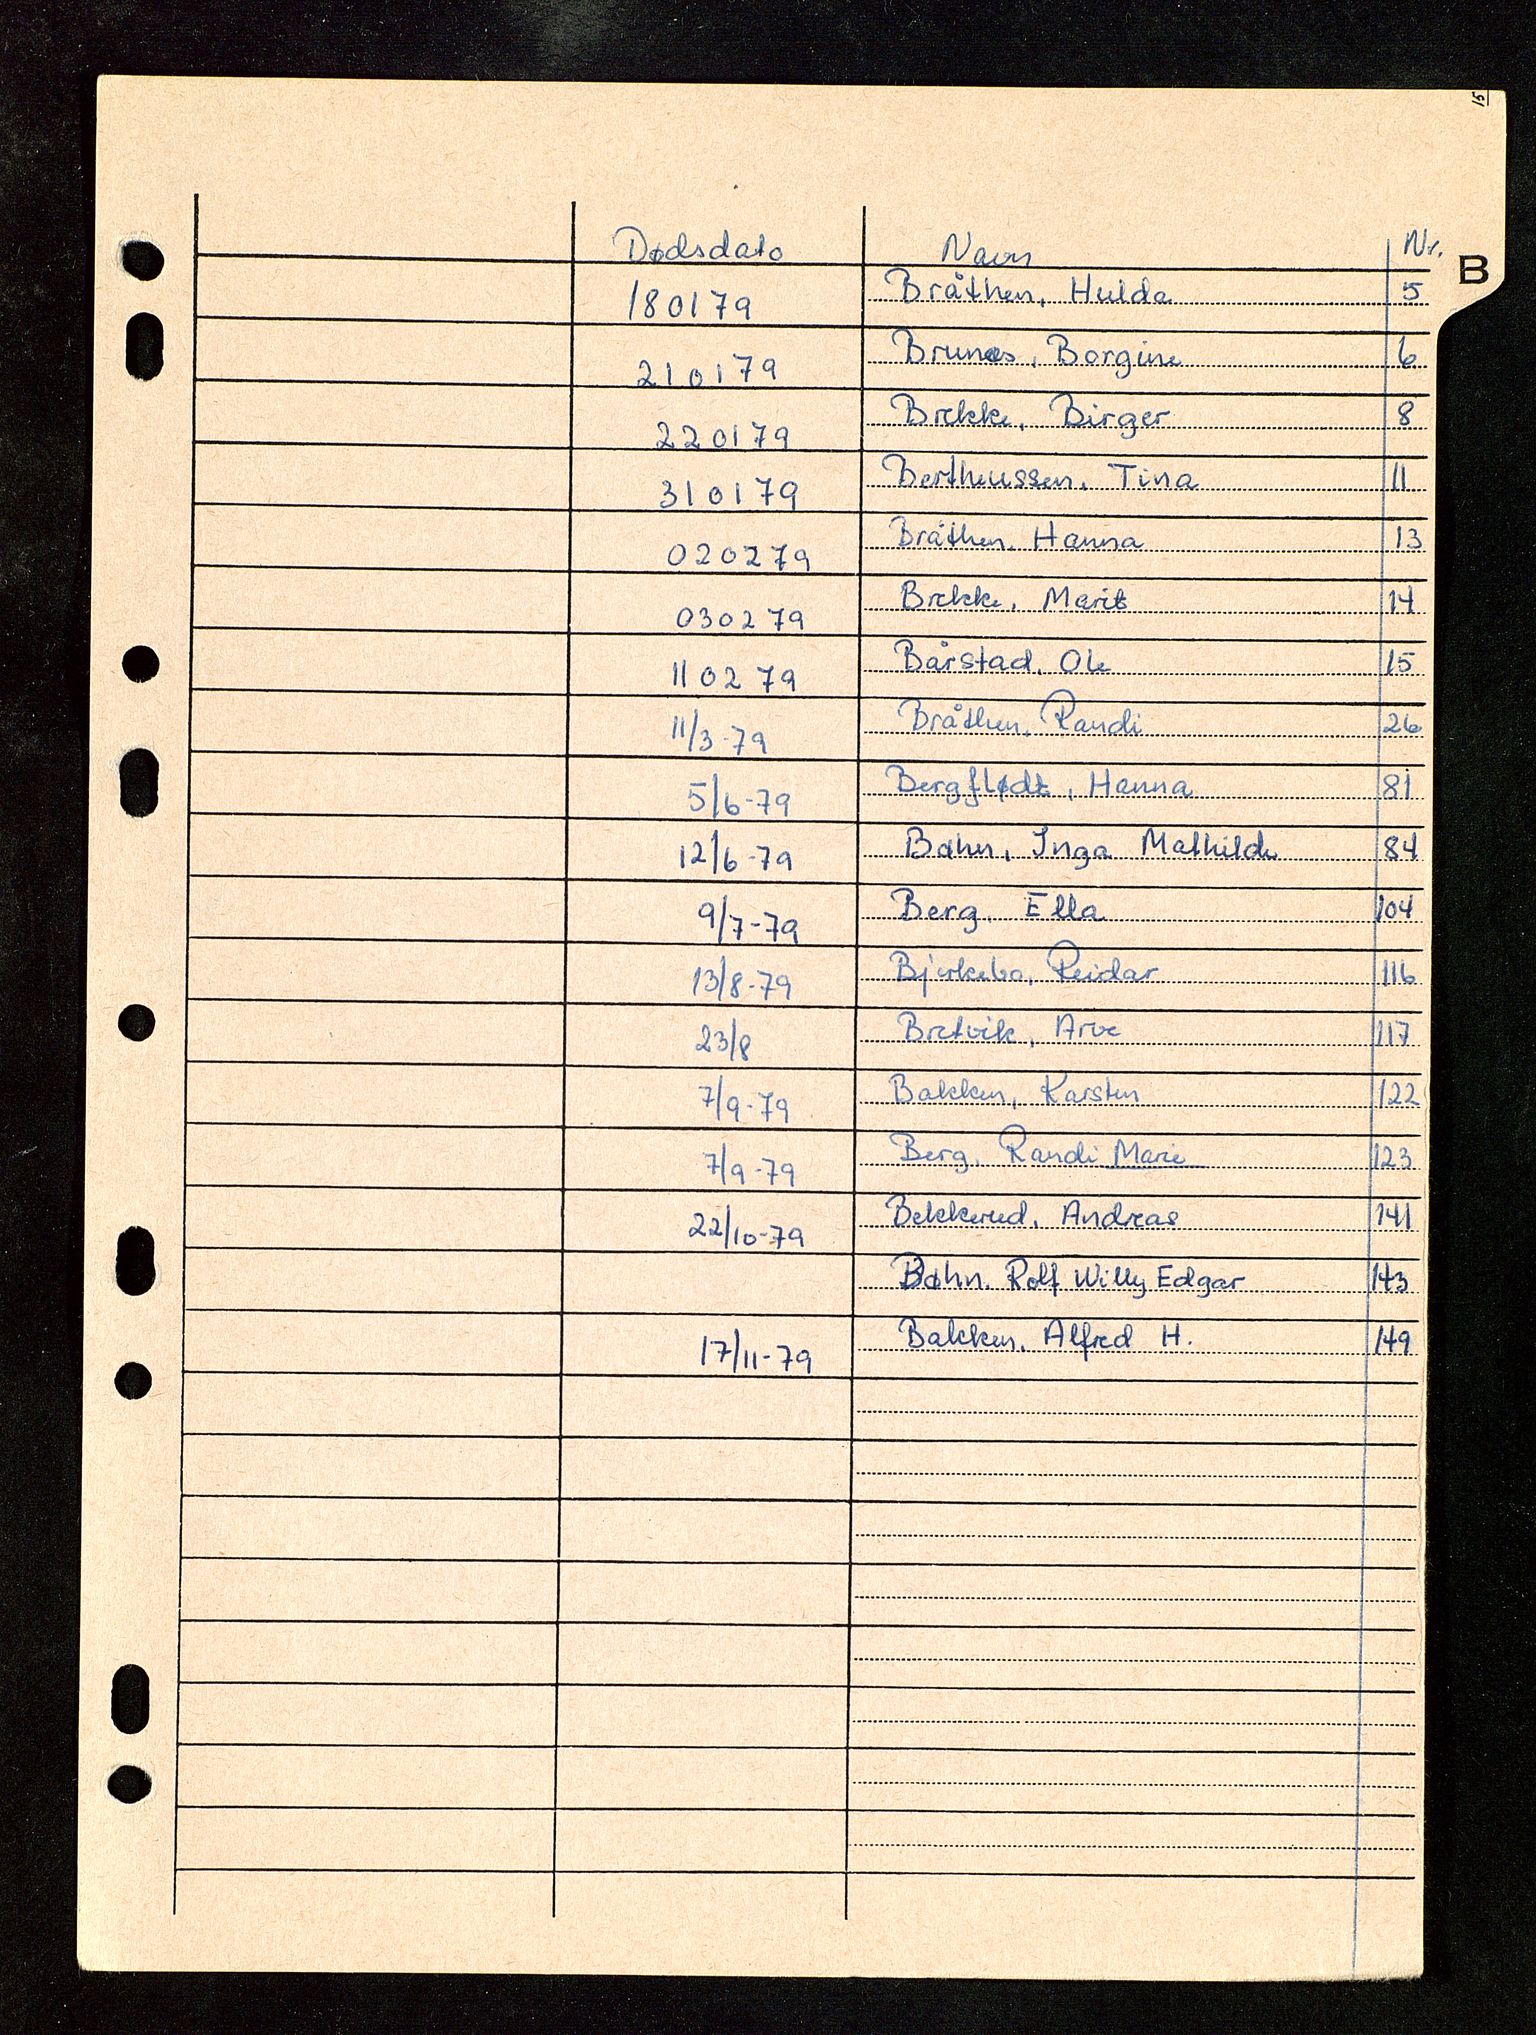 15
B
Dødsdato Navn Nr.
180179 Bråthen, Hulda 5
210179 Brunæs, Borgine 6
220179 Brekke, Birger 8
310179 Bertheussen, Tina 11
020279 Bråthen, Hanna 13
030279 Brekke, Marit 14
110279 Bårstad, Ole 15
11/3-79 Bråthen, Randi 26
5/6-79 Bergflødt, Hanna 81
12/6-79 Bøhn, Inga Mathilde 84
9/7-79 Berg, Ella 104
13/8-79 Bjerkebo, Reidar 116
23/8 Bretvik, Arve 117
7/9-79 Bakken, Karsten 122
7/9-79 Berg, Randi Marie 123
22/10-79 Bekkerud, Andreas 141
Bøhn, Rolf Willy Edgar 143
17/11-79 Bakken, Alfred H. 149